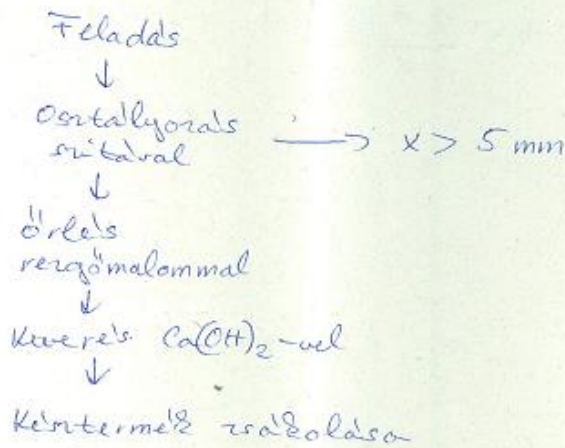 Feladás
↓
Osztályozás → x > 5 mm
szitával
↓
őrlés
rezgőmalommal
↓
Keverés Ca(OH)₂-vel
↓
Késztermék zsákolása